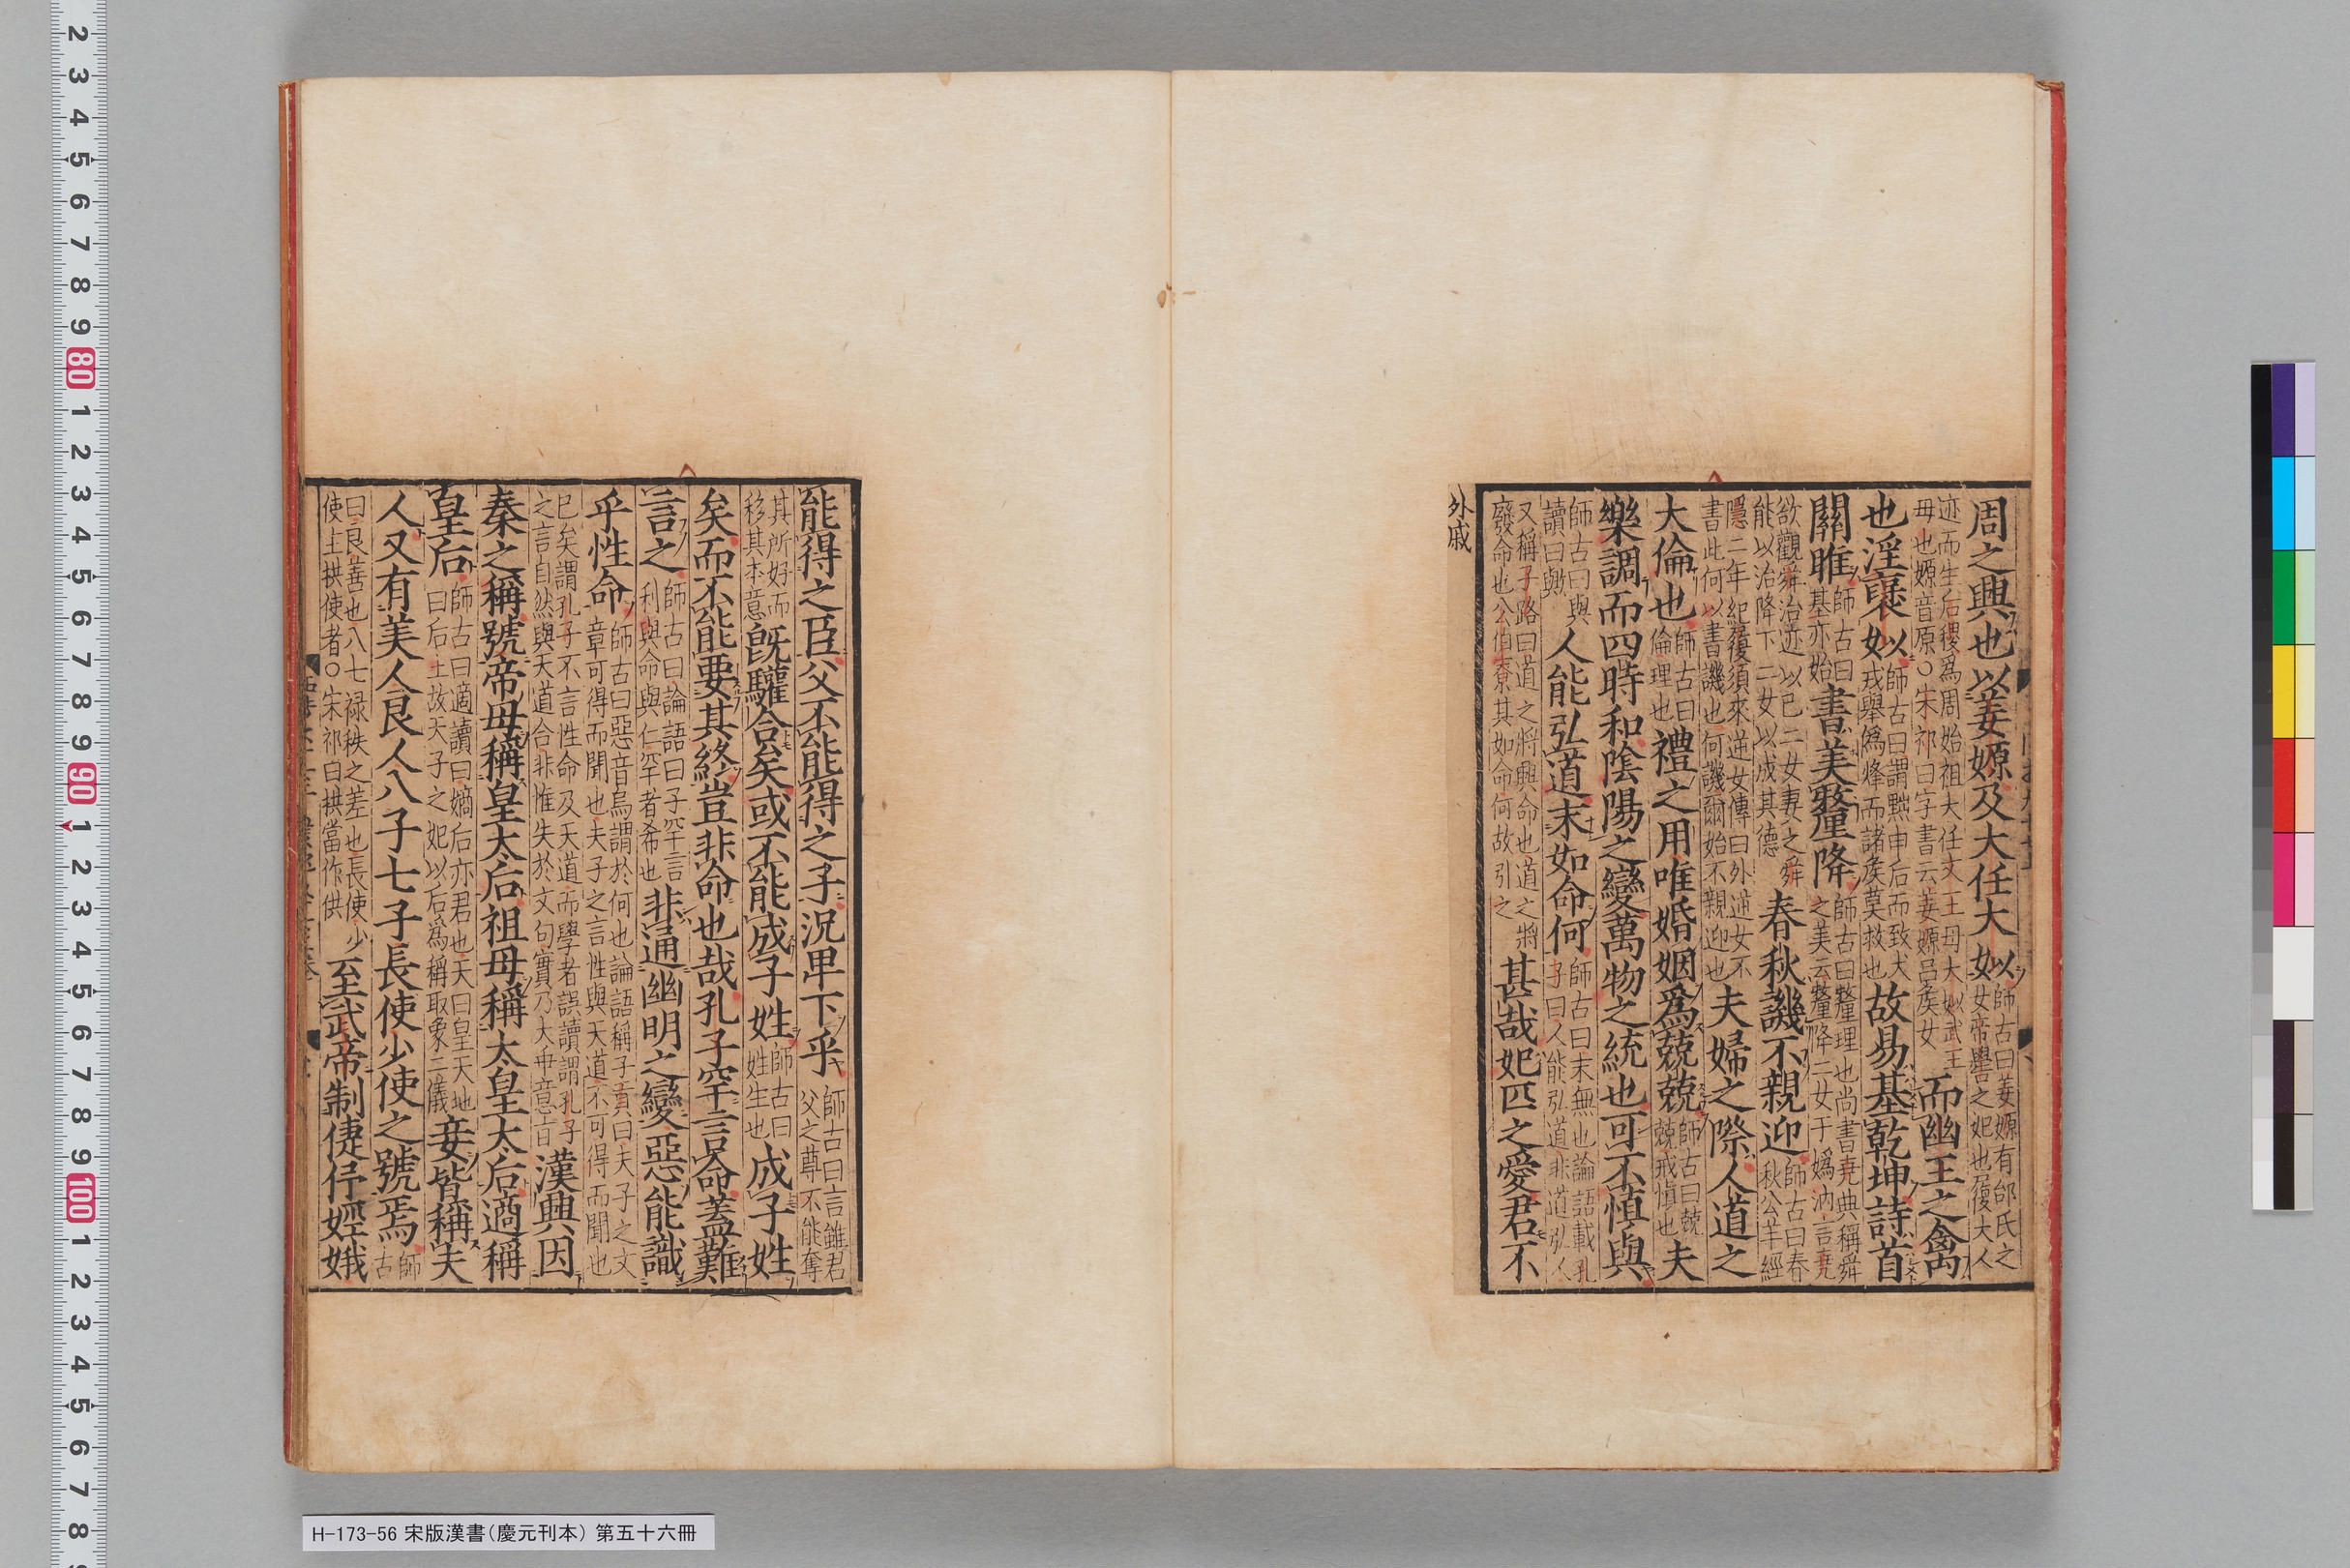 周之興也以姜嫄及大任大姒師古曰姜嫄有邰氏之女帝嚳之妃也履大人
迹而生后稷爲周始祖大任文王母大姒武王母也嫄音原○宋祁曰字書云姜嫄呂矦女而幽王之禽
也淫襃姒師古曰謂黜申后而致犬戎舉僞烽而諸矦莫救也故易基乾坤詩首
關雎師古曰基亦始書美釐降師古曰釐理也尚書堯典稱舜之美云釐降二女于嬀汭言堯
欲觀舜治迹以已二女妻之舜能以治降下二女以成其德春秋譏不親迎師古曰春秋公羊經
隱二年紀履須來逆女傳曰外逆女不書此何以書譏也何譏爾始不親迎也夫婦之際人道之
大倫也師古曰倫理也禮之用唯婚姻爲兢兢師古曰兢兢戒慎也夫
樂調而四時和陰陽之變萬物之統也可不慎與
師古曰與讀曰歟人能弘道末如命何師古曰末無也論語載孔子曰人能弘道非道弘人
又稱子路曰道之將興命也道之將廢命也公伯寮其如命何故引之甚哉妃匹之愛君不
外戚
能得之臣父不能得之子況卑下乎師古曰言雖君父之尊不能奪
其所好而移其本意旣驩合矣或不能成子姓師古曰姓生也成子姓
矣而不能要其終豈非命也哉孔子罕言命蓋難
言之師古曰論語曰子罕言利與命與仁罕者希也非通幽明之變惡能識
乎性命師古曰惡音烏謂於何也論語稱子貢曰夫子之文章可得而聞也夫子之言性與天道不可得而聞也
已矣謂孔子不言性命及天道而學者誤讀謂孔子之言自然與天道合非惟失於文句實乃大乖意旨漢興因
秦之稱號帝母稱皇太后祖母稱太皇太后適稱
皇后師古曰適讀曰嫡后亦君也天曰皇天地曰后土故天子之妃以后爲稱取象二儀妾皆稱夫
人又有美人良人八子七子長使少使之號焉師古
曰良善也八七禄秩之差也長使少使主拱使者○宋祁曰拱當作供至武帝制倢伃娙娥
H-173-56 宋版漢書(慶元刊本) 第五十六冊